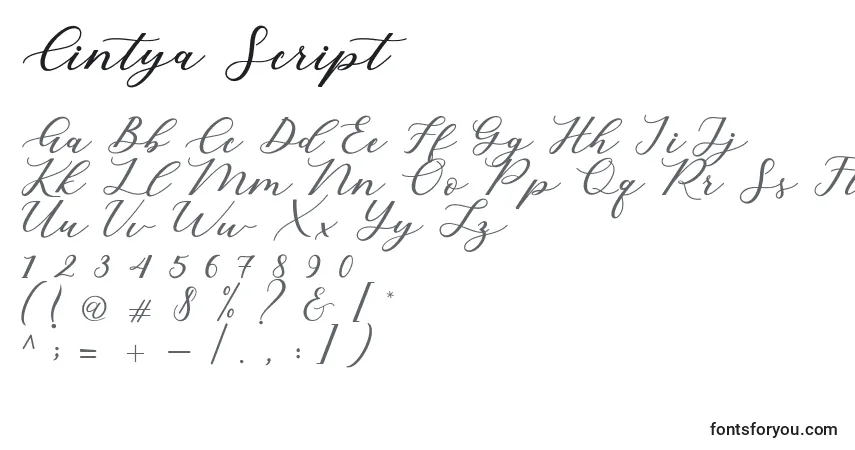 Cintya Script
Aa Bb Cc Dd Ee Ff Gg Hh Ii Jj
Kk Ll Mm Nn Oo Pp Qq Rr Ss
Uu Vv Ww Xx Yy Zz
1 2 3 4 5 6 7 8 9 0
( ! @ # $ % ? & [ *
^ ; = + - / . , : ] )
fontsforyou.com